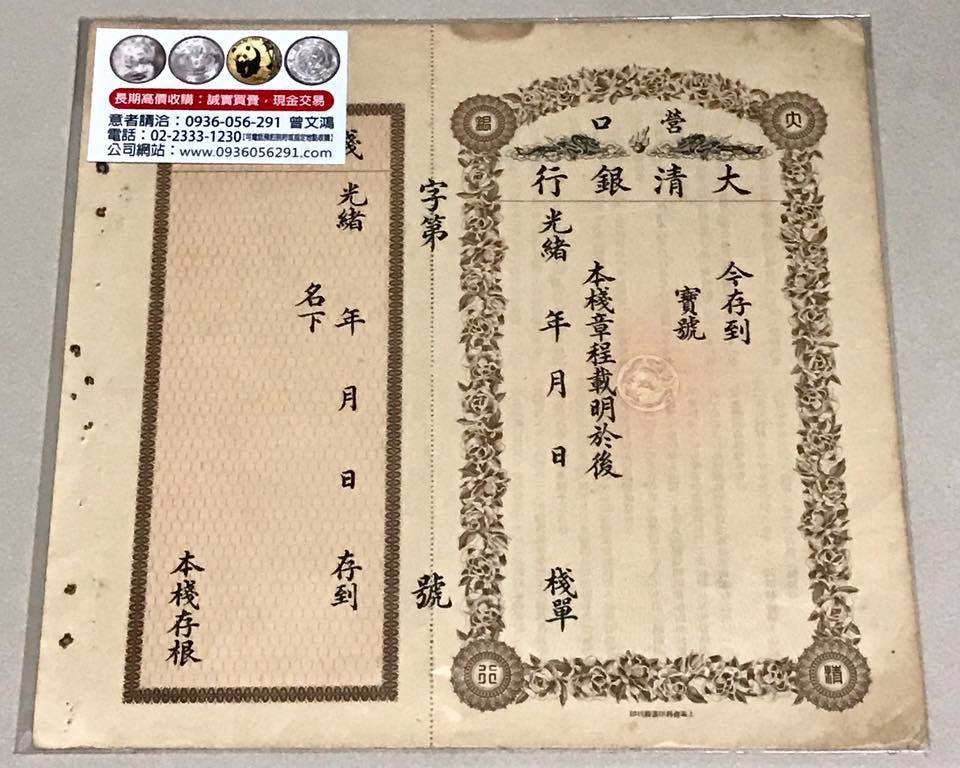 長期高價收購：誠實買賣，現金交易
意者請洽：0936-056-291 曾文鴻
電話：02-2333-1230
公司網站：www.0936056291.com
營口
大清銀行
大
銀
清
行
今存到
寶號
本棧章程載明於後
光緒 年 月 日 棧單
字第 號
棧
光緒 年 月 日 存到
名下
本棧存根